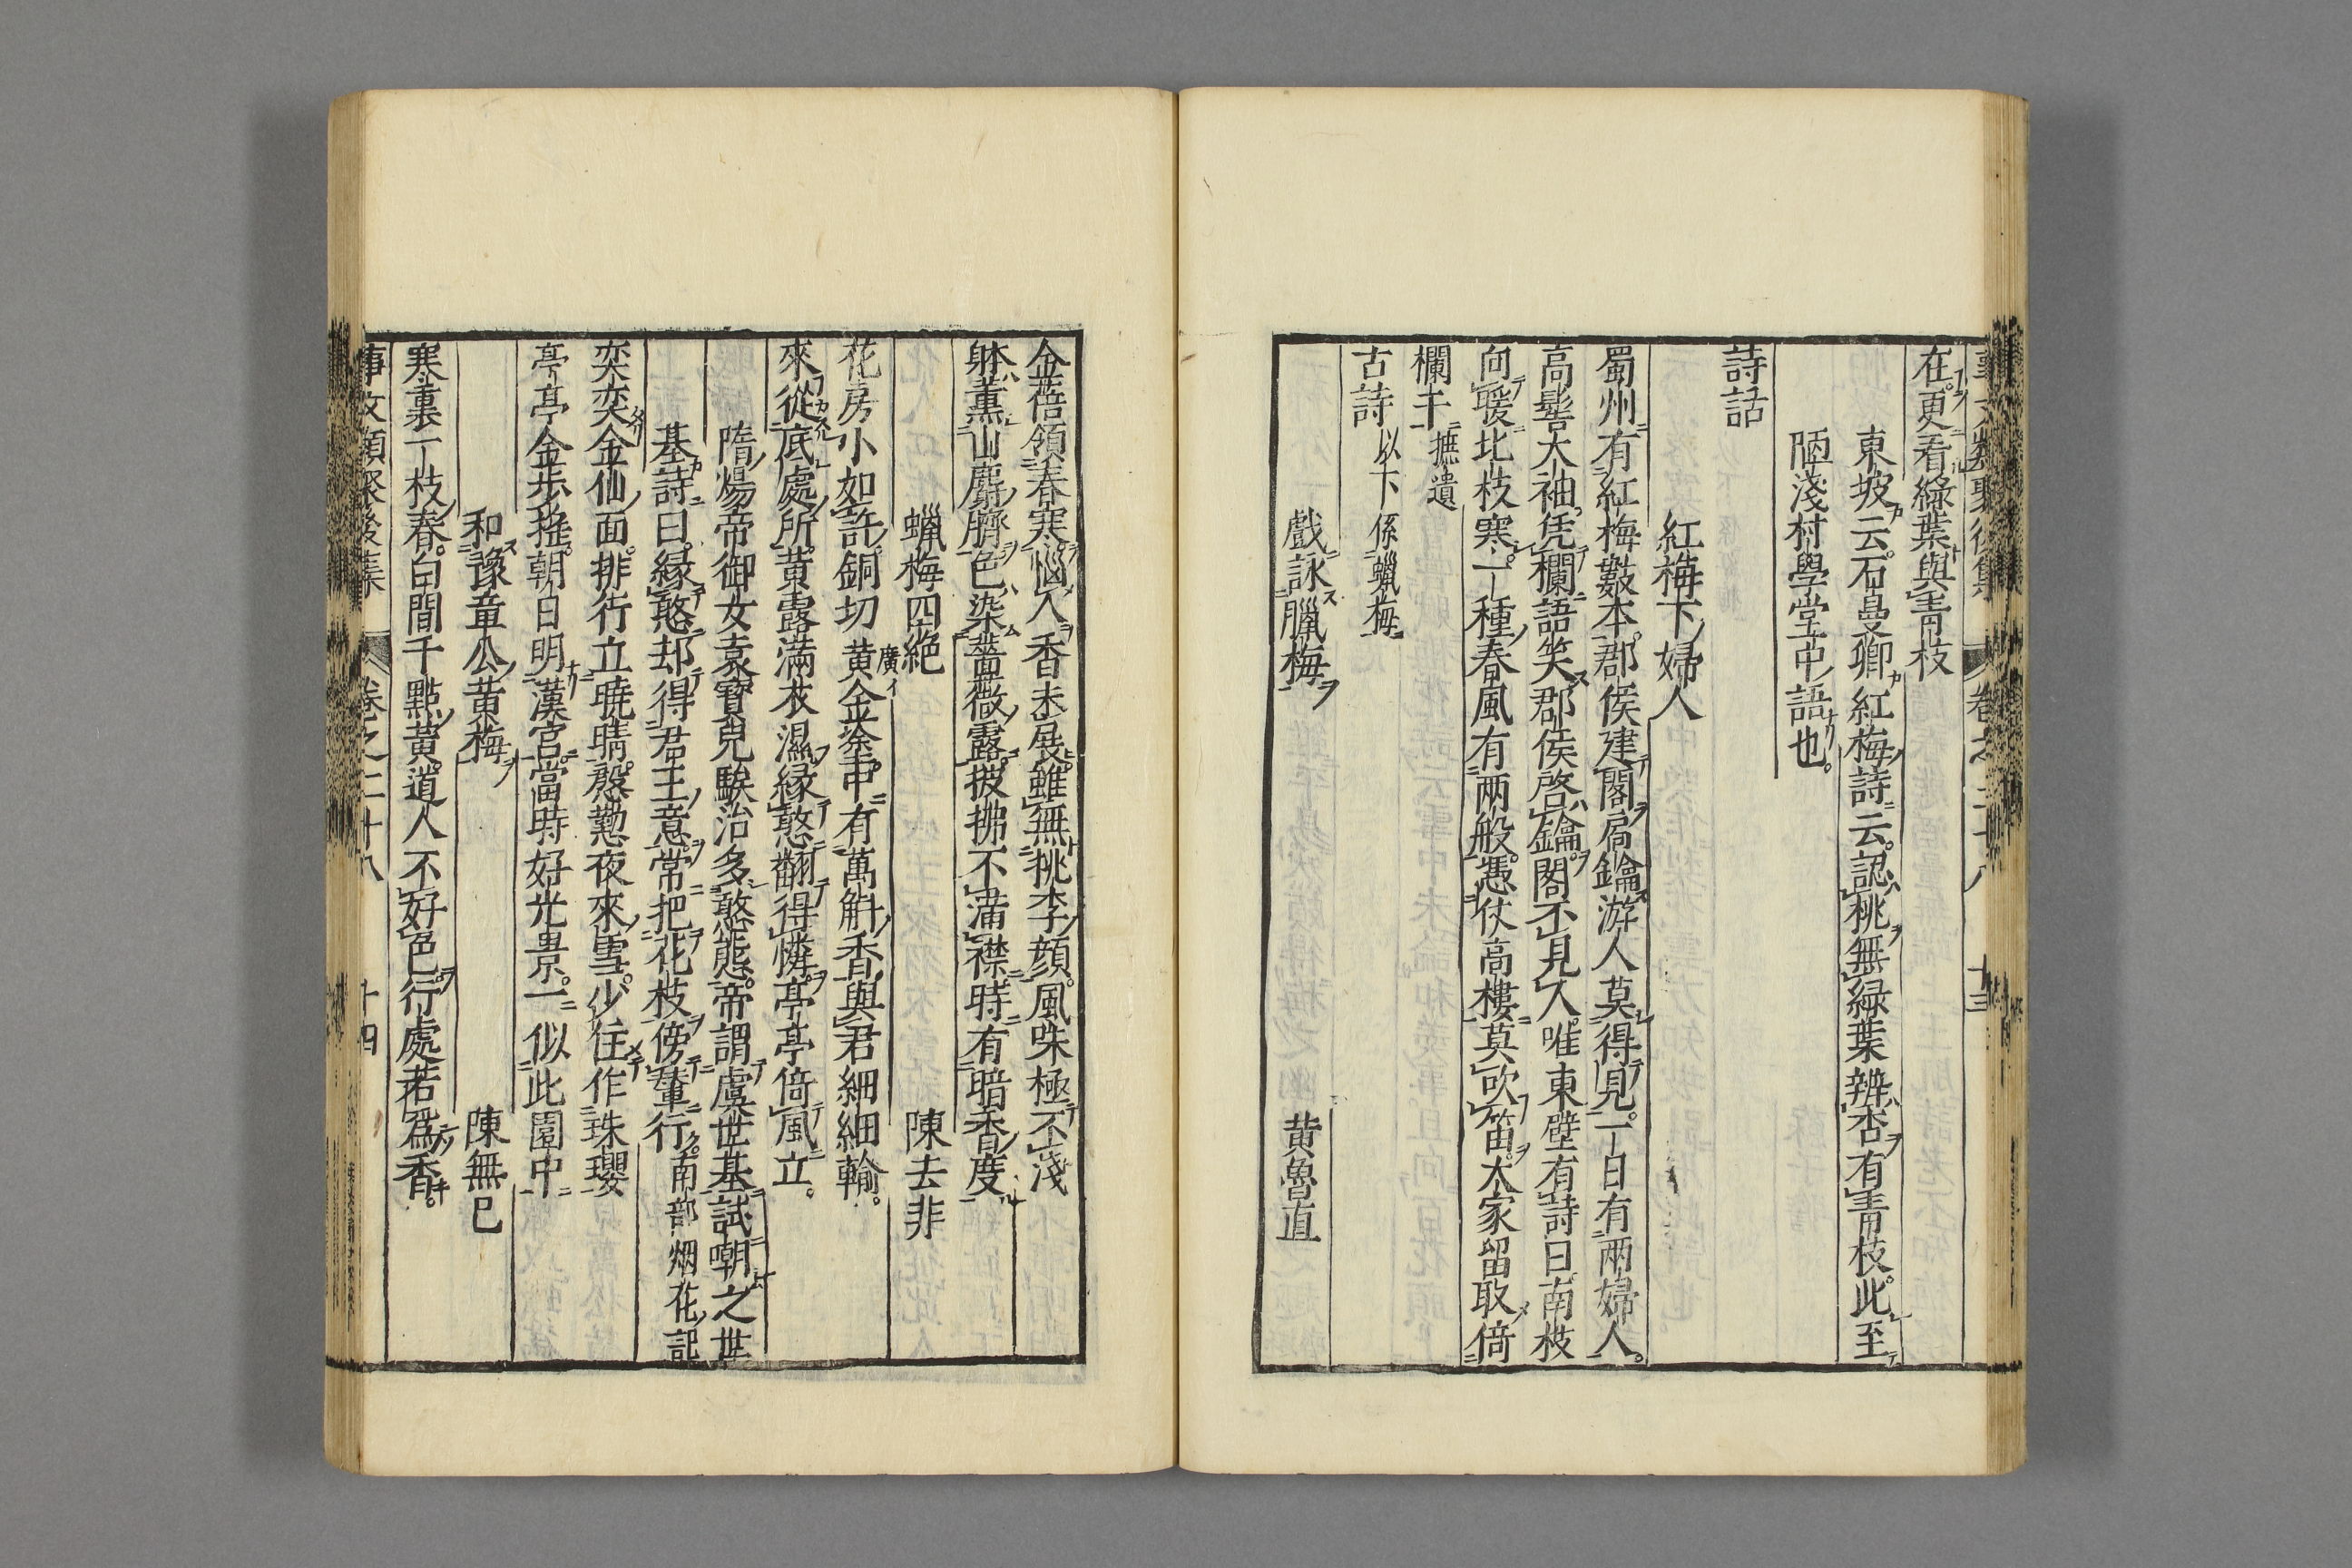 事文類聚後集 卷之二十八 十三
在更看綠葉與青枝
東坡云石曼卿紅梅詩云認桃無緑葉辨杏有青枝此至
陋淺村學堂中語也
詩話
紅梅下婦人
蜀州有紅梅數本郡侯建閣扄鑰游人莫得見一日有兩婦人
高髻大袖凭欄語笑郡侯啓鑰閣不見人唯東壁有詩曰南枝
向暖北枝寒一種春風有兩般憑仗高樓莫吹笛大家留取倚
欄干 摭遺
古詩 以下係蠟梅
戲詠臘梅 黄魯直
金蓓領春寒惱人香未展雖無桃李顔風味極不淺
躰薰山麝臍色染薔薇露披拂不滿襟時有暗香度
蠟梅四絶 陳去非
花房小如許銅切黄金塗中有萬斛香與君細細輸
廣イ
來從底處所黄露滿衣濕縁憨翻得憐亭亭倚風立
隋煬帝御女袁寶兒騃治多憨態帝謂虞世基試嘲之世
基詩曰縁憨却得君王意常把花枝傍輦行 南部烟花記
奕奕金仙面排行立曉晴慇懃夜來雪少住作珠瓔
亭亭金步搖朝日明漢宮當時好光景一似此園中
和豫章公黄梅 陳無已
寒裏一枝春白間千點黄道人不好色行處若爲香
事文類聚後集 卷之二十八 十四